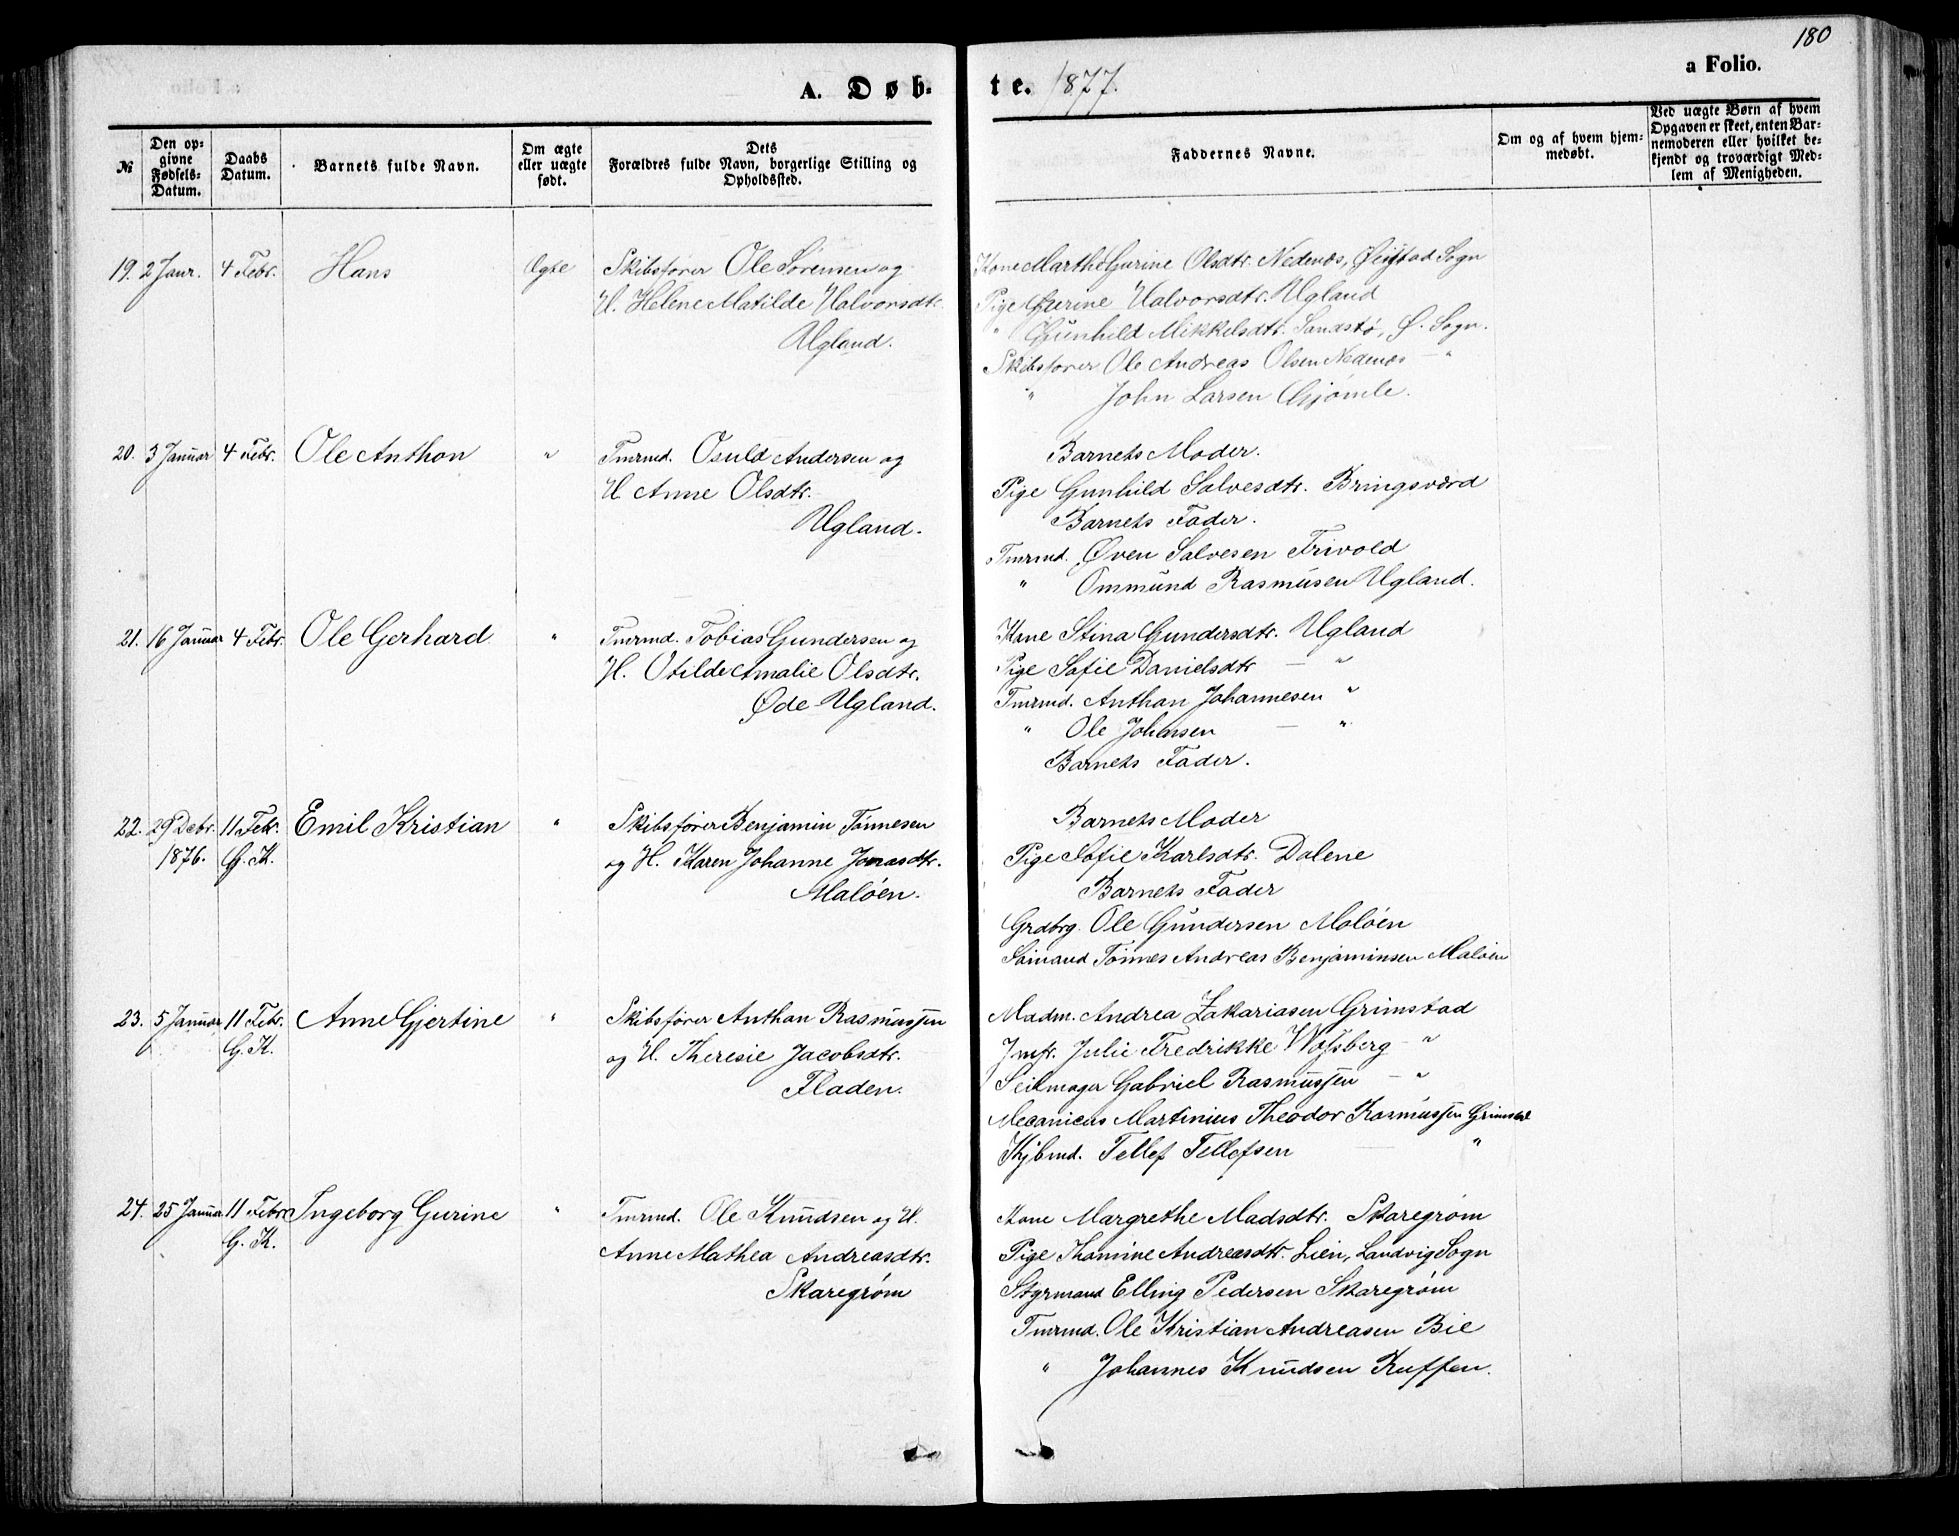 180
A. Døb-
te. 1877.
a Folio.
№
Den op-
givne
Fødsels-
Datum.
Daabs
Datum.
Barnets fulde Navn.
Om ægte
eller uægte
født.
Dets
Forældres fulde Navn, borgerlige Stilling og
Opholdssted.
Faddernes Navne.
Om og af hvem hjem-
medøbt.
Ved uægte Børn af hvem
Opgaven er skeet, enten Bar-
nemoderen eller hvilket be-
kjendt og troværdigt Med-
lem af Menigheden.
19. 2 Janr. 4 Febr. Hans Ægte
Skibsfører Ole Sørensen og
H. Helene Matilde Halvorsdtr.
Ugland.
Kone Marthe Gurine Olsdtr. Nedenæs, Øiestad Sogn
Pige Gurine Halvorsdtr. Ugland
" Gunhild Mikkelsdtr. Sandstø, Ø. Sogn.
Skibsfører Ole Andreas Olsen Nedenæs — "
" John Larsen Gjømle.
20. 3 Januar 4 Febr. Ole Anthon "
Tmrmd. Osuld Andersen og
H. Anne Olsdtr.
Ugland.
Barnets Moder.
Pige Gunhild Salvesdtr. Bringsværd
Barnets Fader.
Tmrmd. Øven Salvesen Frivold
" Ommund Rasmusen Ugland.
21. 16 Januar 4 Febr. Ole Gerhard "
Tmrmd. Tobias Gundersen og
H. Otilde Amalie Olsdtr.
Øde Ugland.
Kone Stina Gundersdtr. Ugland
Pige Sofie Danielsdtr — "
Tmrmd. Anthon Johannesen "
" Ole Johnsen — "
Barnets Fader.
22. 29 Debr. 1876. 11 Febr. G. K. Emil Kristian "
Skibsfører Benjamin Tønnesen
og H. Karen Johanne Jonasdtr.
Maløen.
Barnets Moder
Pige Sofie Karlsdtr. Dalene
Barnets Fader
Grdbrg. Ole Gundersen Maløen
Sømand Tønnes Andreas Benjaminsen Maløen
23. 5 Januar 11 Febr. G. K. Anne Gjertine "
Skibsfører Anthon Rasmussen
og H. Theresie Jacobsdtr.
Fladen.
Madm. Andrea Zakariasen Grimstad
Jmfr. Julie Fredrikke Wossberg — "
Seilmager Gabriel Rasmussen — "
Mecanicus Martinius Theodor Rasmussen Grimstad
Kjbmd. Tellef Tellefsen "
24. 25 Januar 11 Febr. G. K. Ingeborg Gurine "
Tmrmd. Ole Knudsen og H.
Anne Mathea Andreasdtr.
Skaregrøm
Kone Margrethe Madsdtr. Skaregrøm
Pige Thomine Andreasdtr. Lien, Landvig Sogn
Styrmand Elling Pedersen Skaregrøm
Tmrmd. Ole Kristian Andreasen Bie
" Johannes Knudsen Kuffen.